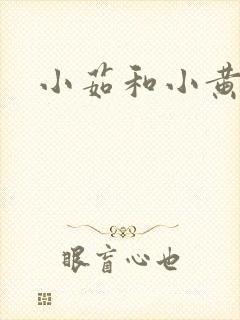 小茹和小黄
眼盲心也